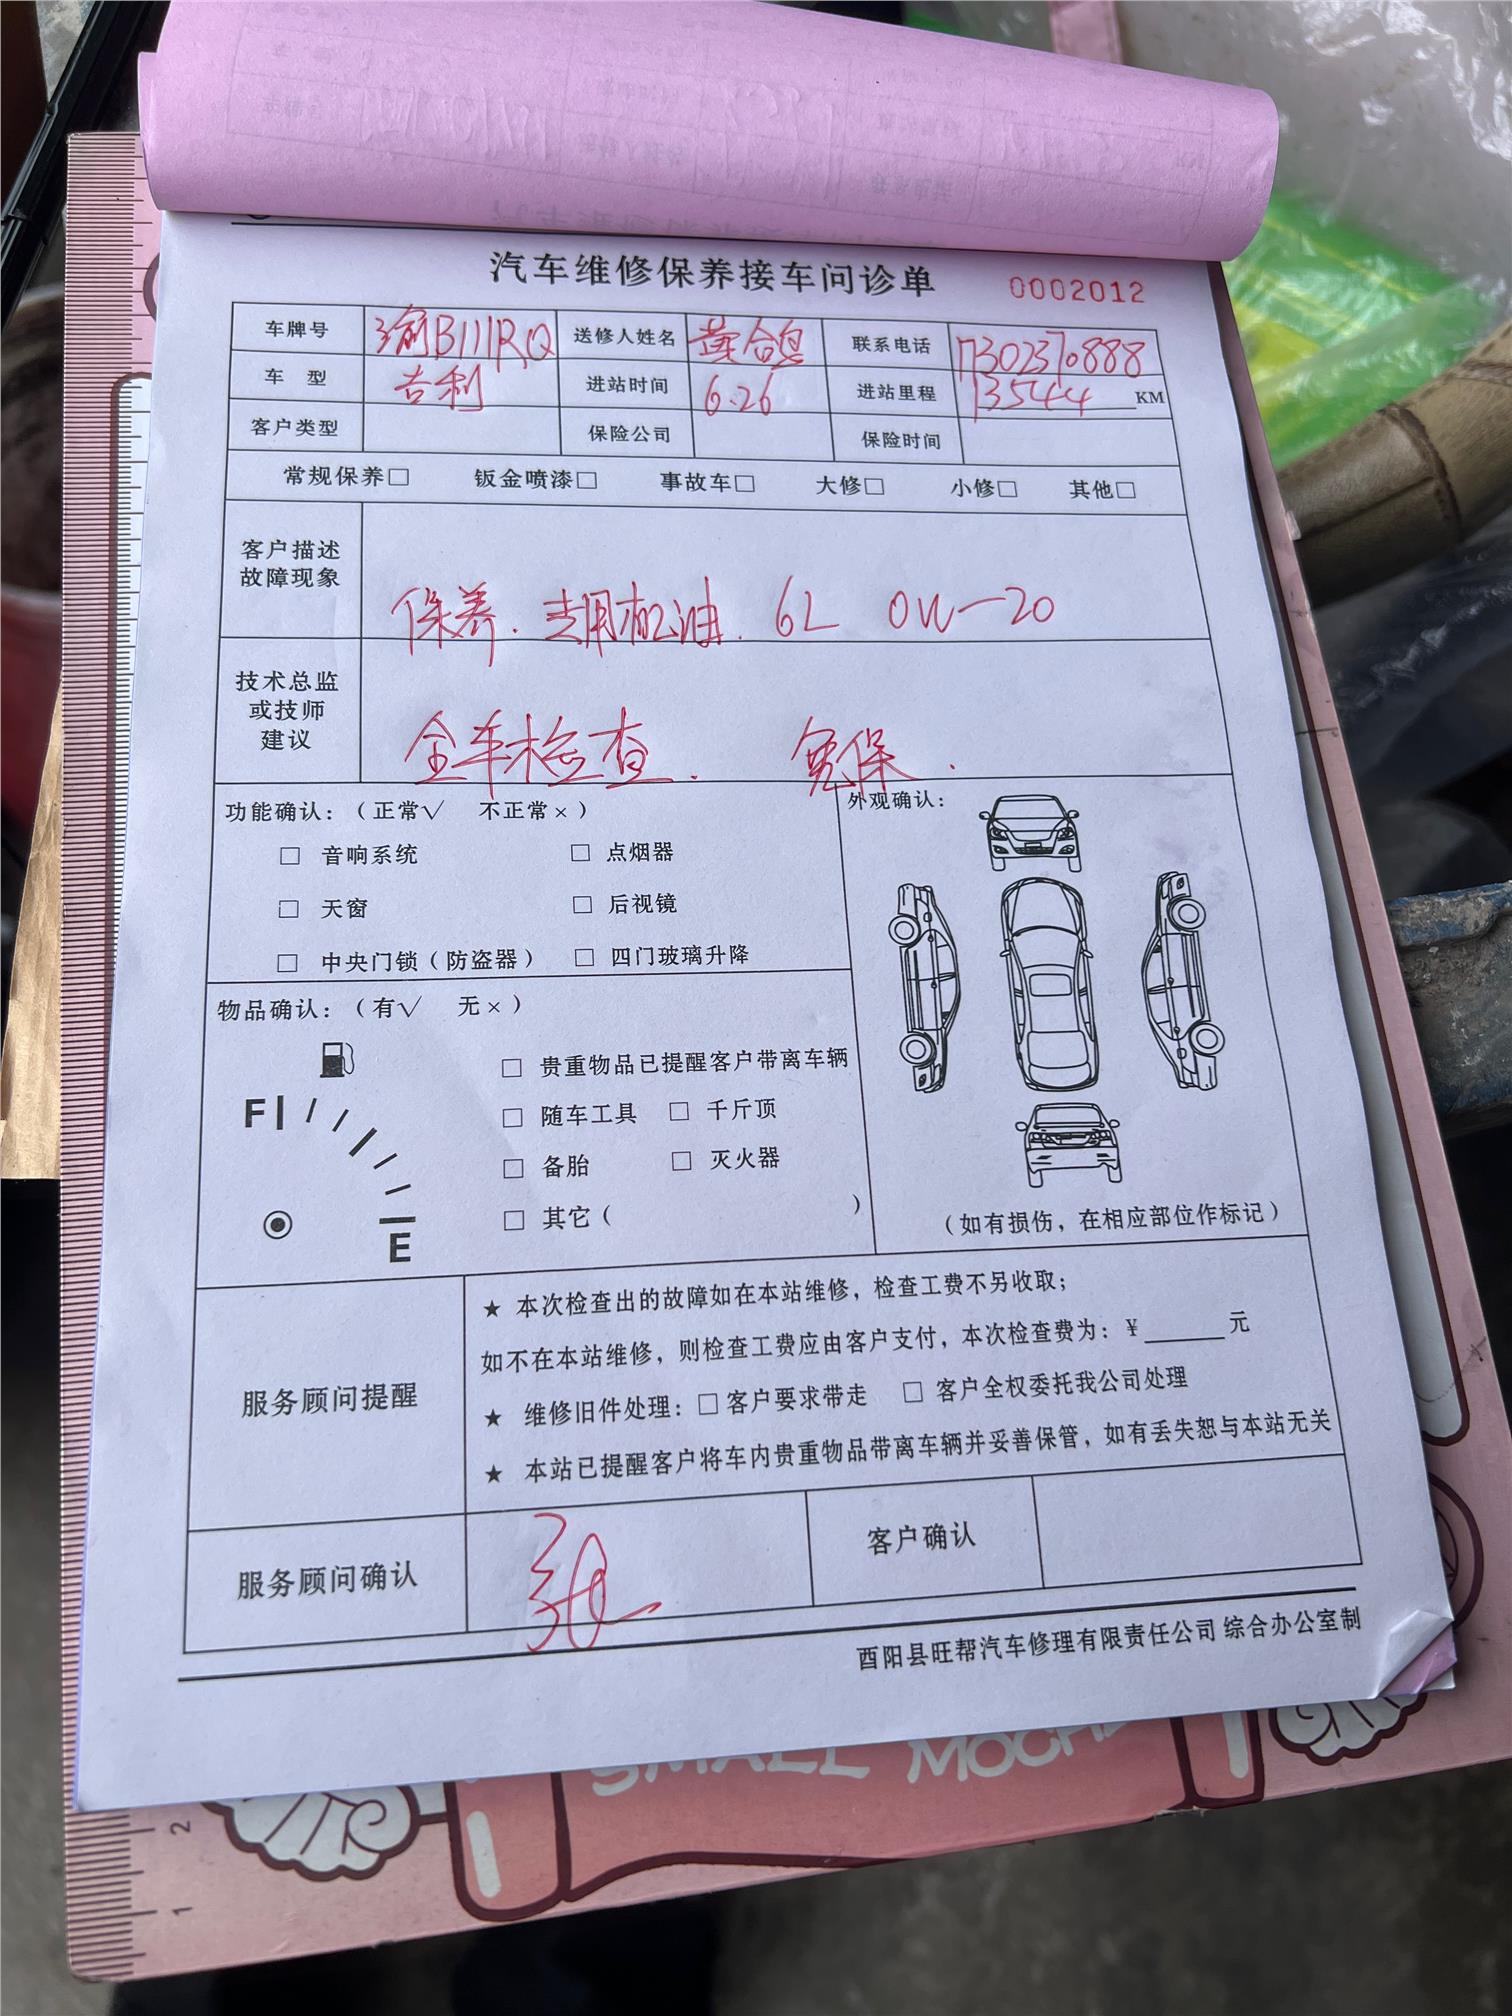 汽车维修保养接车问诊单 0002012
车牌号 渝B111RQ 送修人姓名 联系电话 17302370888
车 型 吉利 进站时间 6.26 进站里程 13544 KM
客户类型 保险公司 保险时间
常规保养□ 钣金喷漆□ 事故车□ 大修□ 小修□ 其他□
客户描述
故障现象
保养. 专用机油. 6L 0W-20
技术总监
或技师
建议
全车检查. 免保.
功能确认：（正常√ 不正常×）
□ 音响系统 □ 点烟器
□ 天窗 □ 后视镜
□ 中央门锁（防盗器） □ 四门玻璃升降
外观确认：
（如有损伤，在相应部位作标记）
物品确认：（有√ 无×）
F
E
□ 贵重物品已提醒客户带离车辆
□ 随车工具 □ 千斤顶
□ 备胎 □ 灭火器
□ 其它（ ）
服务顾问提醒
★ 本次检查出的故障如在本站维修，检查工费不另收取；
如不在本站维修，则检查工费应由客户支付，本次检查费为：¥______元
★ 维修旧件处理：□客户要求带走 □ 客户全权委托我公司处理
★ 本站已提醒客户将车内贵重物品带离车辆并妥善保管，如有丢失恕与本站无关
服务顾问确认 张 客户确认
酉阳县旺帮汽车修理有限责任公司 综合办公室制
SMALL MOCHA
2
1